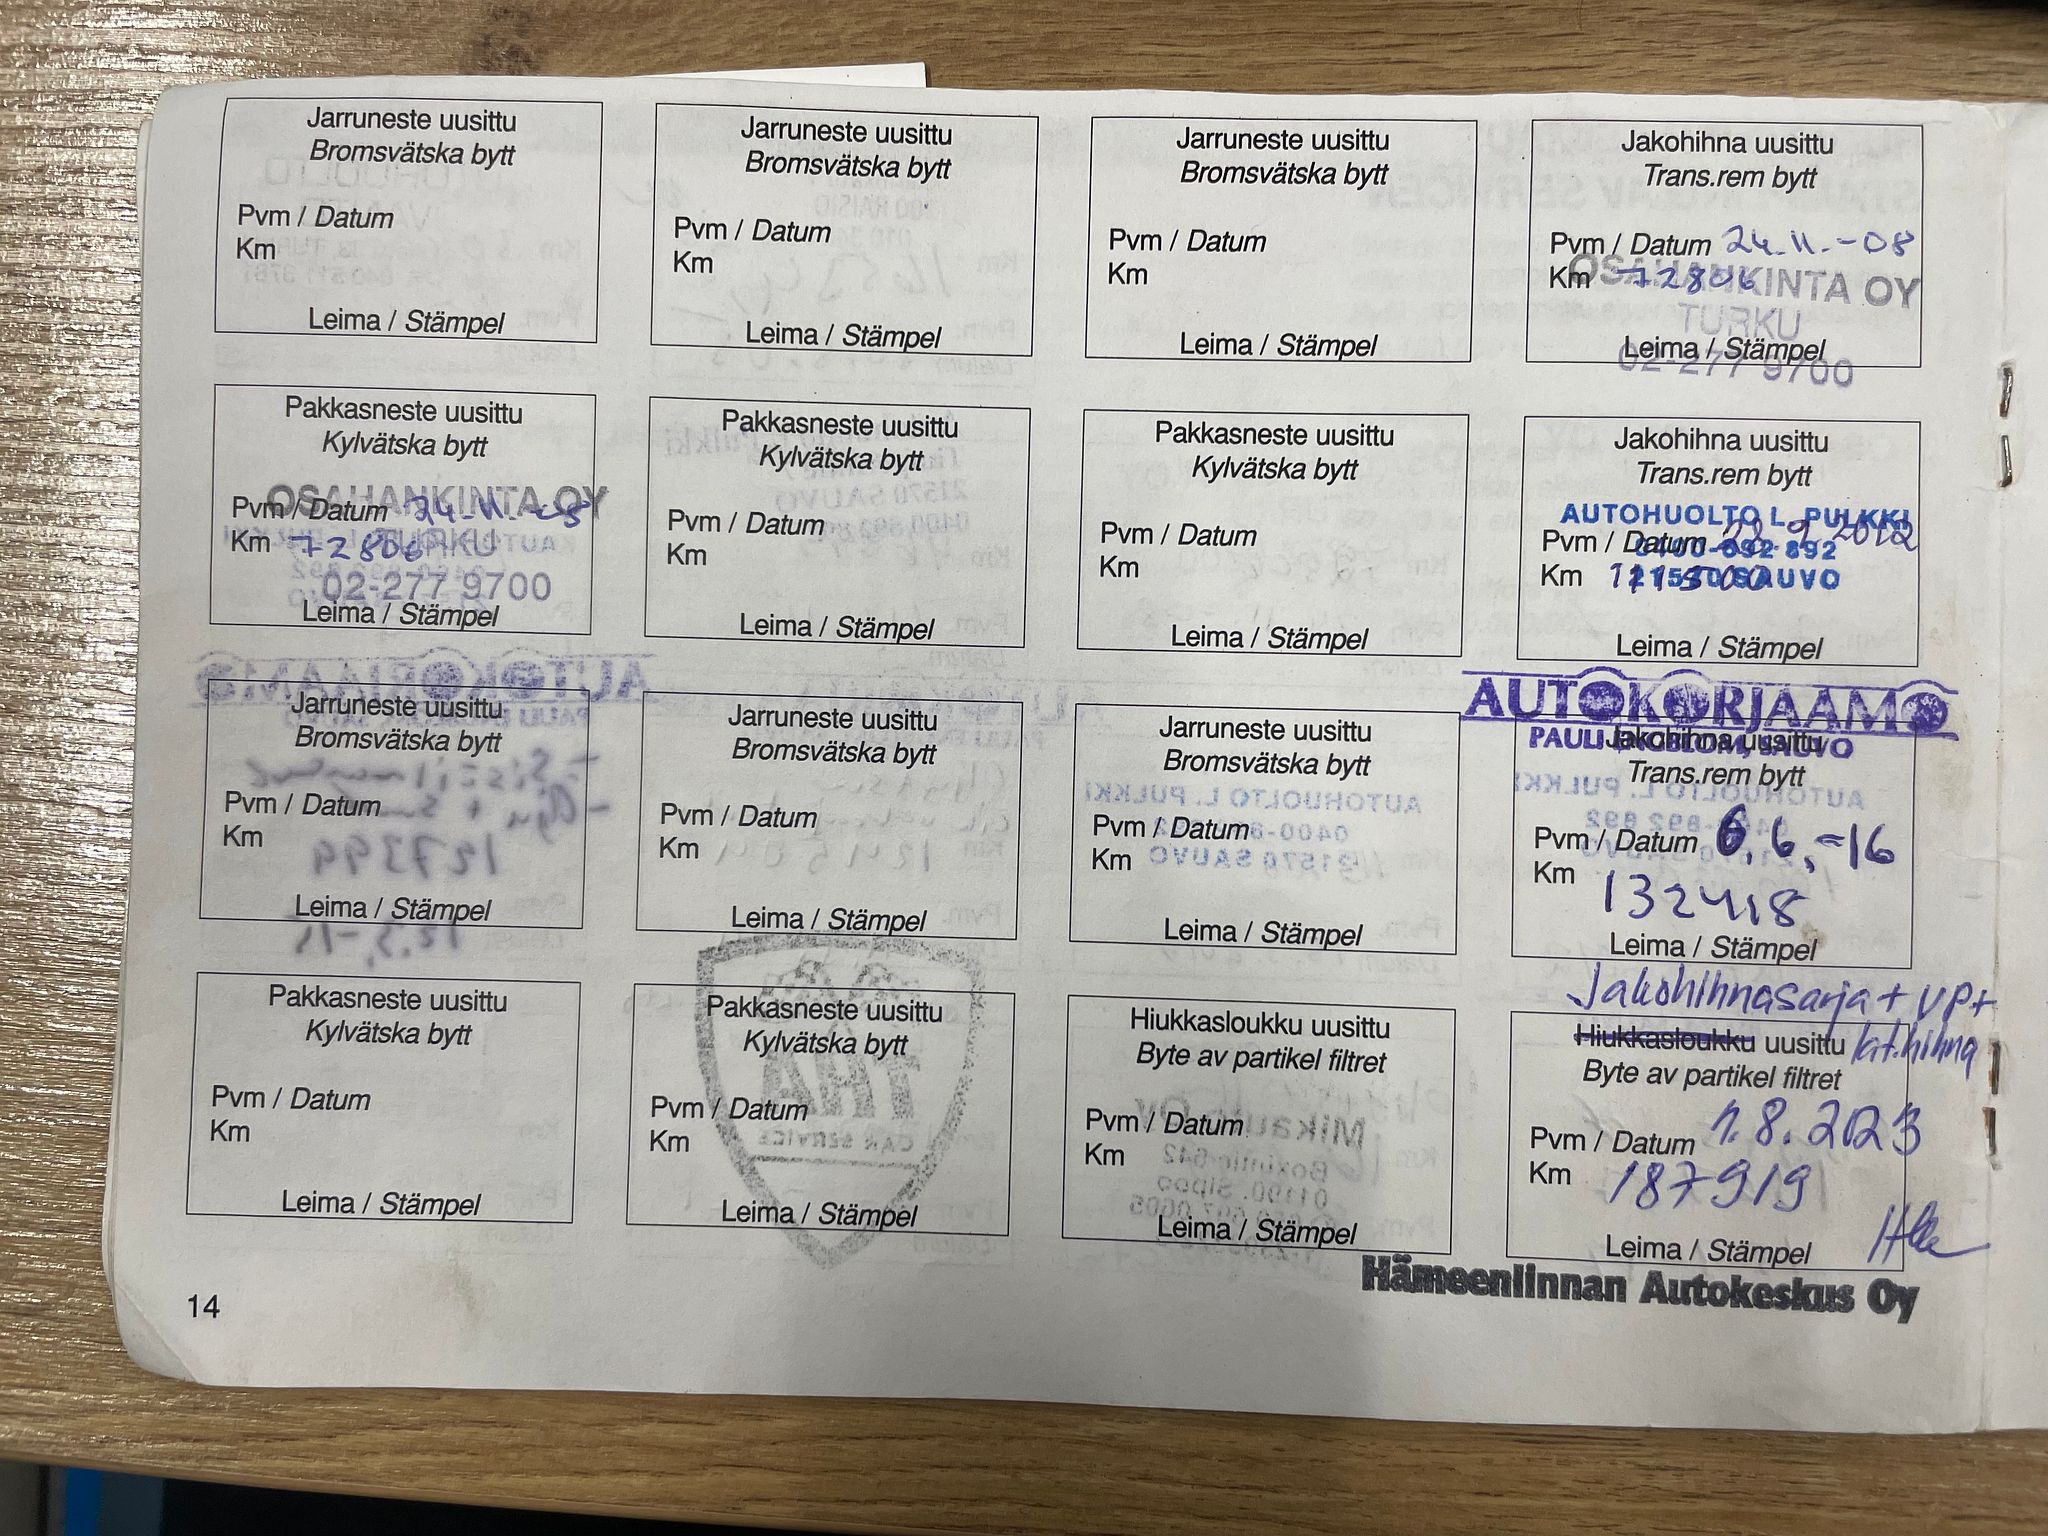 Jarruneste uusittu
Bromsvätska bytt
Pvm / Datum
Km
Leima / Stämpel
Jarruneste uusittu
Bromsvätska bytt
Pvm / Datum
Km
Leima / Stämpel
Jarruneste uusittu
Bromsvätska bytt
Pvm / Datum
Km
Leima / Stämpel
Jakohihna uusittu
Trans.rem bytt
Pvm / Datum 24.11.-08
Km 72806
OSAHANKINTA OY
TURKU
Leima / Stämpel
02-277 9700
Pakkasneste uusittu
Kylvätska bytt
OSAHANKINTA OY
Pvm / Datum 24.11.-08
Km 72806
TURKU
02-277 9700
Leima / Stämpel
Pakkasneste uusittu
Kylvätska bytt
Pvm / Datum
Km
Leima / Stämpel
Pakkasneste uusittu
Kylvätska bytt
Pvm / Datum
Km
Leima / Stämpel
Jakohihna uusittu
Trans.rem bytt
AUTOHUOLTO L. PULKKI
Pvm / Datum 9.2012
0400-892 892
Km
21570 SAUVO
Leima / Stämpel
Jarruneste uusittu
Bromsvätska bytt
Pvm / Datum
Km
Leima / Stämpel
Jarruneste uusittu
Bromsvätska bytt
Pvm / Datum
Km
Leima / Stämpel
Jarruneste uusittu
Bromsvätska bytt
Pvm / Datum
Km
Leima / Stämpel
AUTOKORJAAMO
PAULI SAUVO
Jakohihna uusittu
Trans.rem bytt
Pvm / Datum 6.6.-16
Km 132418
Leima / Stämpel
Pakkasneste uusittu
Kylvätska bytt
Pvm / Datum
Km
Leima / Stämpel
Pakkasneste uusittu
Kylvätska bytt
Pvm / Datum
Km
Leima / Stämpel
Hiukkasloukku uusittu
Byte av partikel filtret
Pvm / Datum
Km
Leima / Stämpel
Jakohihnasarja + VP +
Hiukkasloukku uusittu kit.hihna
Byte av partikel filtret
Pvm / Datum 1.8.2023
Km 187919
Leima / Stämpel
Hämeenlinnan Autokeskus Oy
14